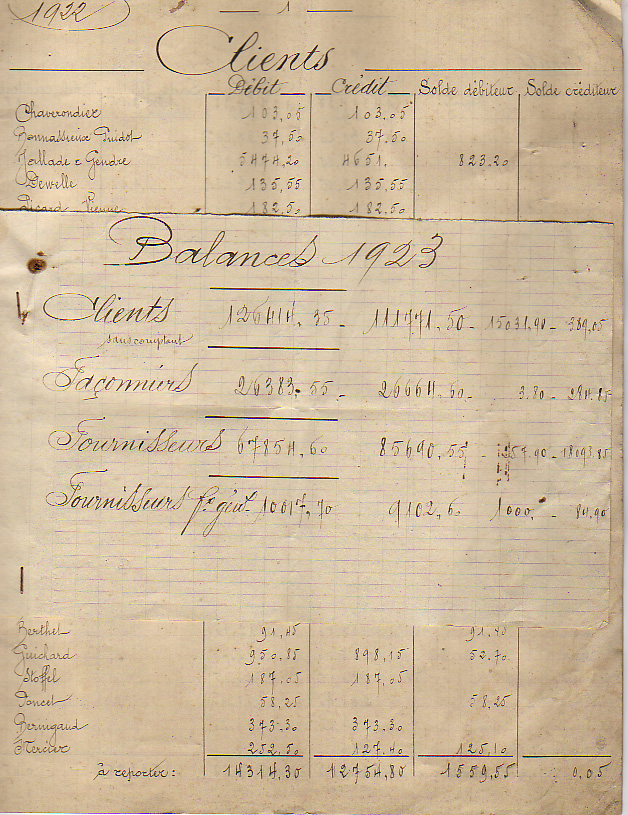 1922
1
Clients
Débit Crédit Solde débiteur Solde créditeur
Chaverondier 103,05 103,05
Bonnassieux Guidot 37,50 37.50
Jallade & Gendre 5474.20 4651. 823.20
Dewelle 135,55 135.55
Picard Vienne 182.50 182.50
Balances 1923
Clients 126414,35 - 111771,50 - 15031.90 - 389,05
sans comptant
Façonniers 26383.55 - 26664.60 - 3.80 - 284.85
Fournisseurs 67854,60 85690,55 - 257.90 - 18093.85
Fournisseurs 10017,70 9102,60 1000, - 84.90
Berthet 91,45
Guichard 950,85 898,15 52.70
Stoffel 187,05 187,05
Poncet 58,25 58,25
Bernigaud 373.30 373.30
Mercier 252,50 127.40 125,10
à reporter : 14314,30 12754,80 1559,55 0,05